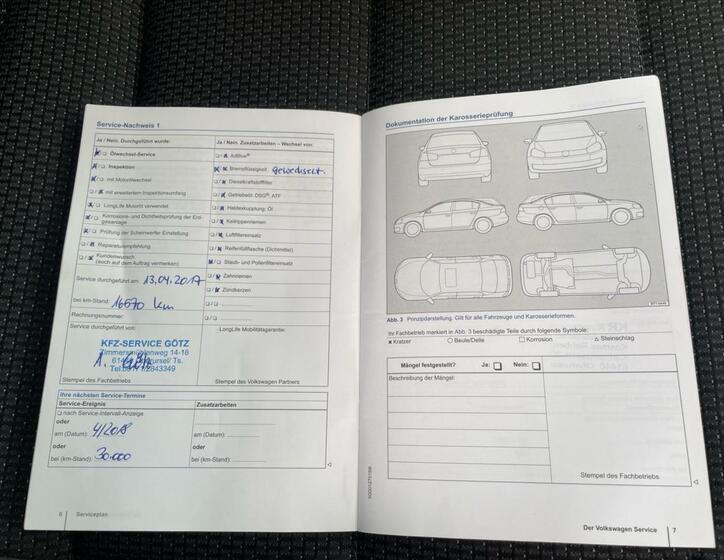 Service-Nachweis 1
Ja / Nein. Durchgeführt wurde:
Ölwechsel-Service
Inspektion
mit Motorölwechsel
mit erweitertem Inspektionsumfang
LongLife Motoröl verwendet
Korrosions- und Dichtheitsprüfung der Erdgasanlage
Prüfung der Scheinwerfer Einstellung
Reparaturempfehlung
Kundenwunsch
(auch auf dem Auftrag vermerken)
Service durchgeführt am: 13.04.2017
bei km-Stand: 16670 km
Rechnungsnummer:
Service durchgeführt von:
KFZ-SERVICE GÖTZ
Zimmersmühlenweg 14-16
Stempel des Fachbetriebs
Ja / Nein. Zusatzarbeiten – Wechsel von:
AdBlue®
Bremsflüssigkeit gewechselt.
Dieselkraftstofffilter
Getriebeöl: DSG®, ATF
Haldexkupplung: Öl
Keilrippenriemen
Luftfiltereinsatz
Reifenfüllflasche (Dichtmittel)
Staub- und Pollenfiltereinsatz
Zahnriemen
Zündkerzen
LongLife Mobilitätsgarantie:
Stempel des Volkswagen Partners
Ihre nächsten Service-Termine
Service-Ereignis
Zusatzarbeiten
nach Service-Intervall-Anzeige
oder
am (Datum): 4/2018
am (Datum):
oder
oder
bei (km-Stand): 30.000
bei (km-Stand):
6 Serviceplan
Dokumentation der Karosserieprüfung
Abb. 3 Prinzipdarstellung. Gilt für alle Fahrzeuge und Karosserieformen.
Ihr Fachbetrieb markiert in Abb. 3 beschädigte Teile durch folgende Symbole:
x Kratzer
○ Beule/Delle
□ Korrosion
△ Steinschlag
Mängel festgestellt? Ja: Nein:
Beschreibung der Mängel:
Stempel des Fachbetriebs
Der Volkswagen Service 7